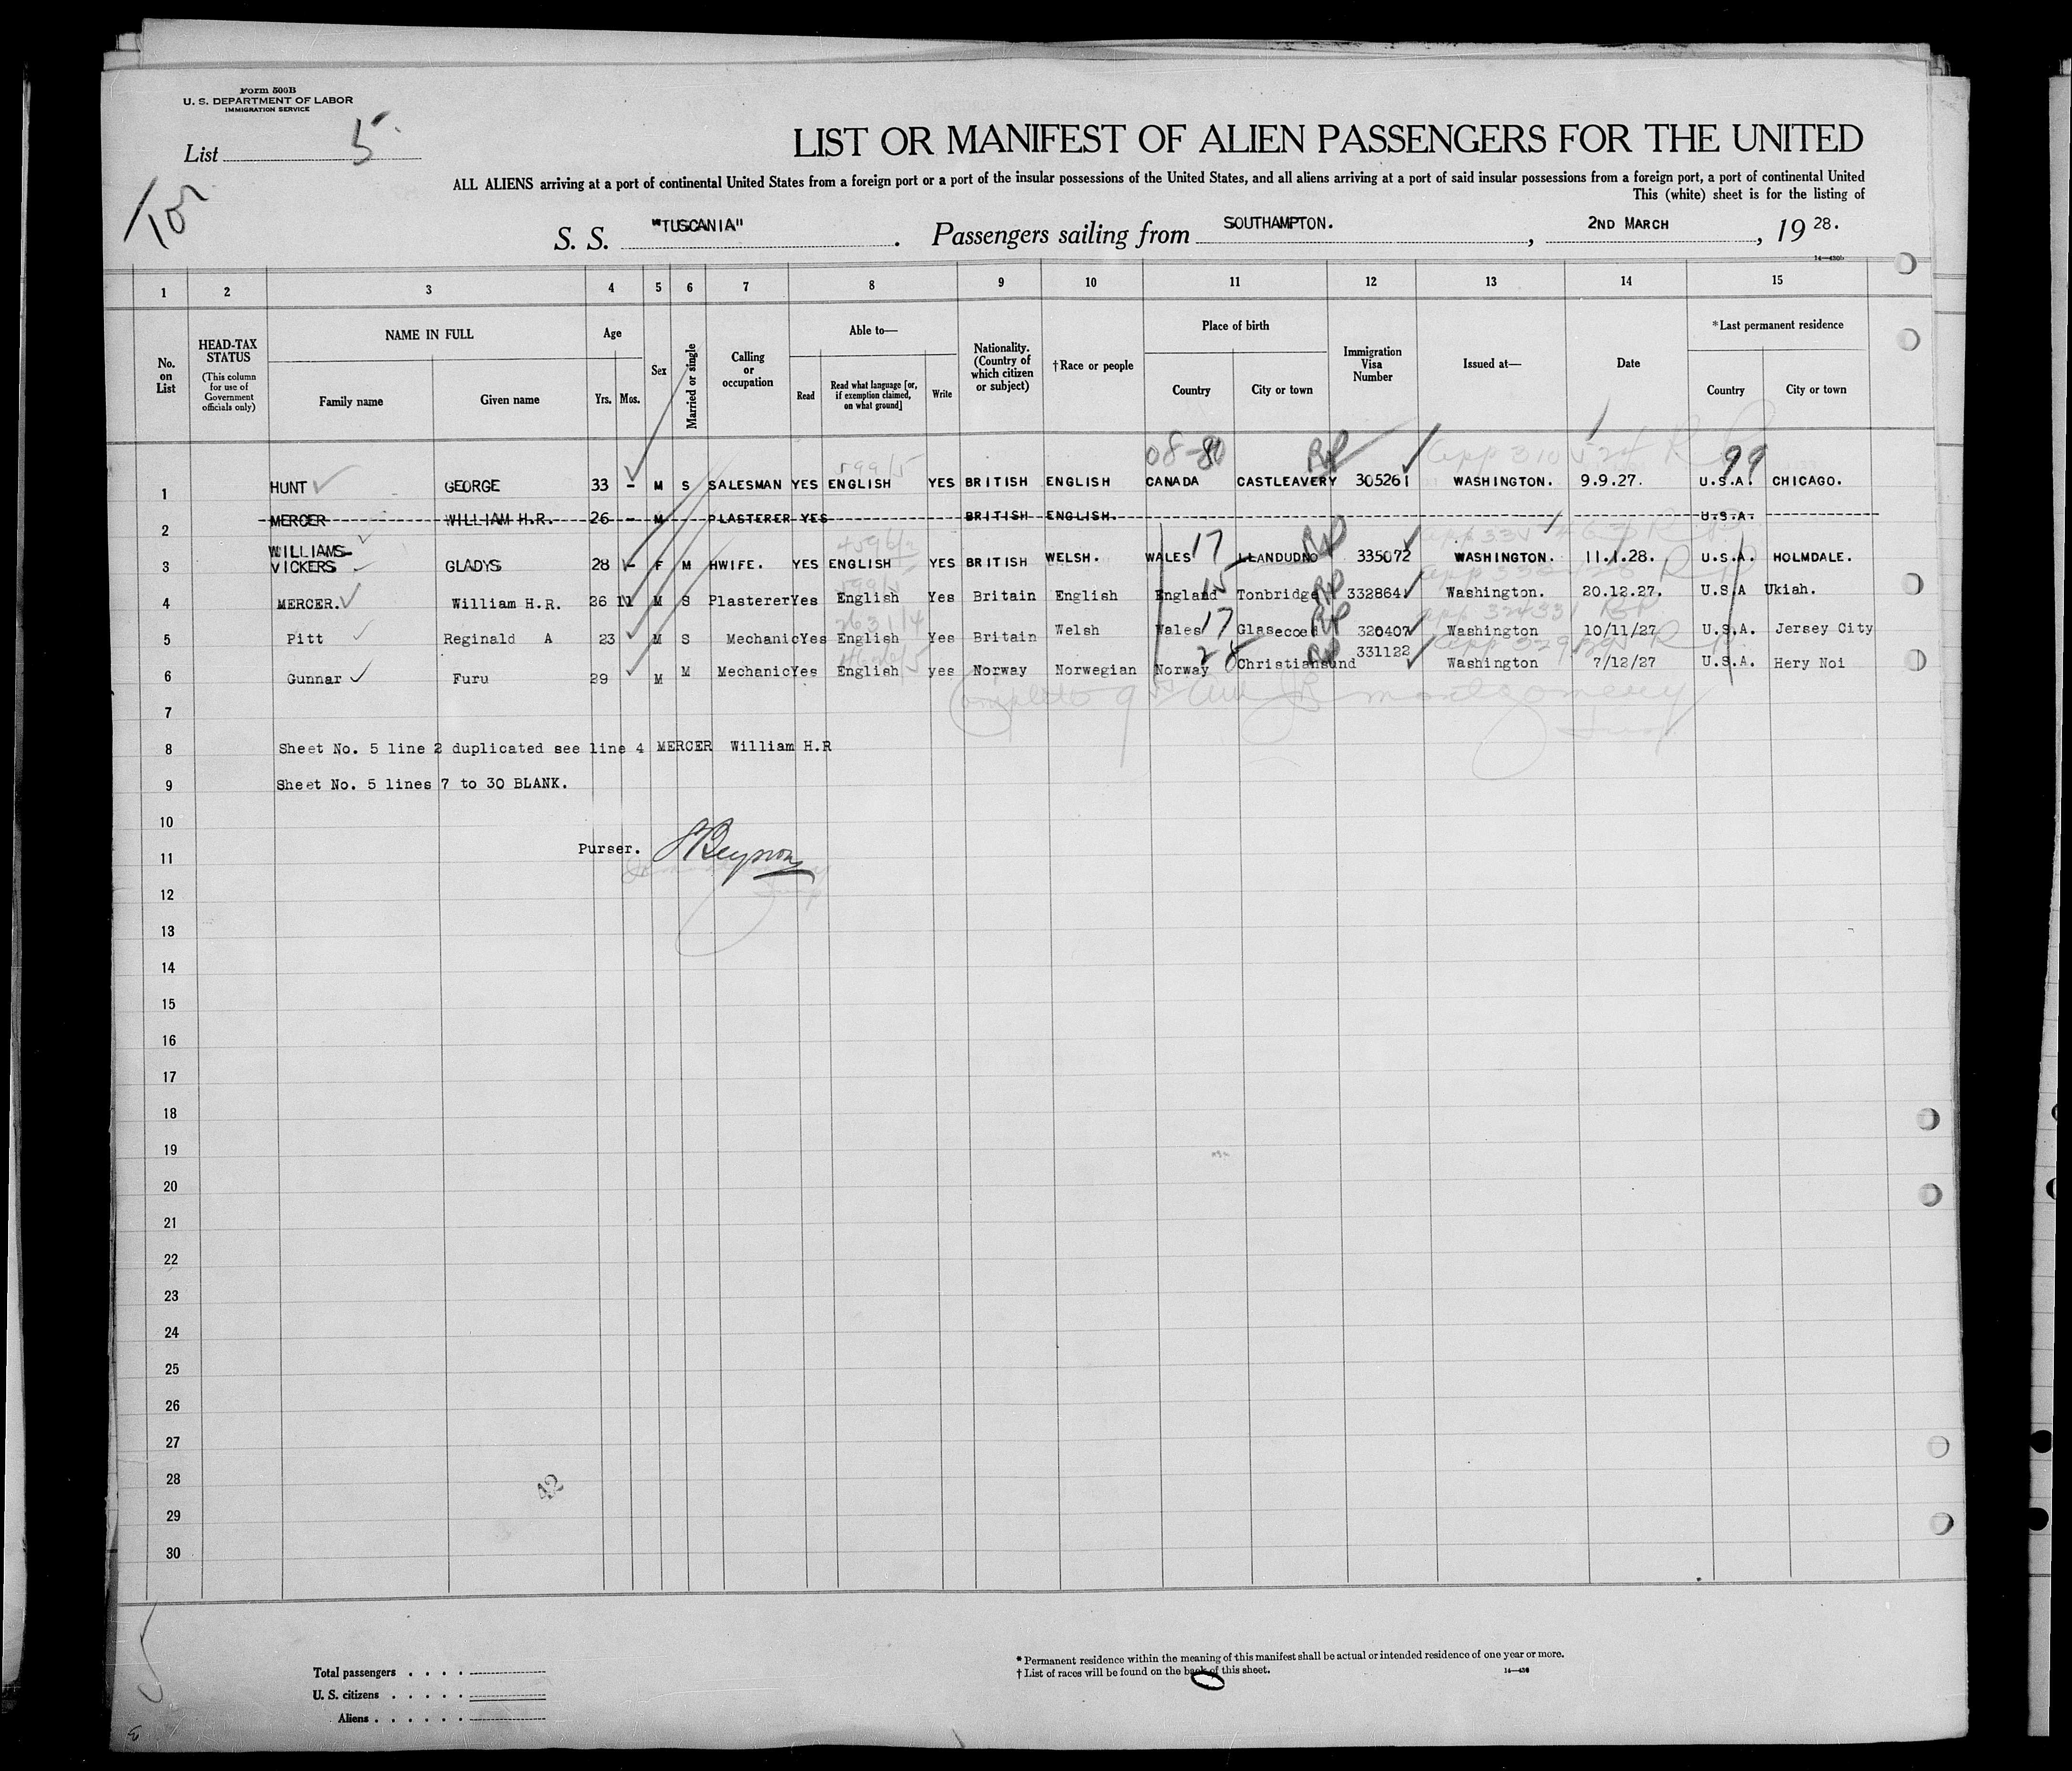 Form 500B
U. S. DEPARTMENT OF LABOR
IMMIGRATION SERVICE
List 5
LIST OR MANIFEST OF ALIEN PASSENGERS FOR THE UNITED
ALL ALIENS arriving at a port of continental United States from a foreign port or a port of the insular possessions of the United States, and all aliens arriving at a port of said insular possessions from a foreign port, a port of continental United
This (white) sheet is for the listing of
S. S. "TUSCANIA". Passengers sailing from SOUTHAMPTON. , 2ND MARCH , 19 28.
1 2 3 4 5 6 7 8 9 10 11 12 13 14 15
No. on List
HEAD-TAX STATUS (This column for use of Government officials only)
NAME IN FULL Family name Given name
Age Yrs. Mos.
Sex
Married or single
Calling or occupation
Able to— Read Read what language [or, if exemption claimed, on what ground] Write
Nationality. (Country of which citizen or subject)
†Race or people
Place of birth Country City or town
Immigration Visa Number
Issued at—
Date
*Last permanent residence Country City or town
1 HUNT GEORGE 33 - M S SALESMAN YES ENGLISH YES BRITISH ENGLISH CANADA CASTLEAVERY 305261 WASHINGTON. 9.9.27. U.S.A. CHICAGO.
2 MERCER WILLIAM H.R. 26 - M PLASTERER YES BRITISH ENGLISH. U.S.A.
3 WILLIAMS-VICKERS GLADYS 28 - F M HWIFE. YES ENGLISH YES BRITISH WELSH. WALES 17 LLANDUDNO 335072 WASHINGTON. 11.1.28. U.S.A. HOLMDALE.
4 MERCER. William H.R. 26 11 M S Plasterer Yes English Yes Britain English England 15 Tonbridge 332864 Washington. 20.12.27. U.S.A Ukiah.
5 Pitt Reginald A 23 M S Mechanic Yes English Yes Britain Welsh Wales 17 Glasecoed 320407 Washington 10/11/27 U.S.A. Jersey City
6 Gunnar Furu 29 M M Mechanic Yes English yes Norway Norwegian Norway Christiansund 331122 Washington 7/12/27 U.S.A. Hery Noi
7
8 Sheet No. 5 line 2 duplicated see line 4 MERCER William H.R
9 Sheet No. 5 lines 7 to 30 BLANK.
10
Purser.
11
12
13
14
15
16
17
18
19
20
21
22
23
24
25
26
27
28
42
29
30
Total passengers . . . .
U. S. citizens . . . . .
Aliens . . . . . .
* Permanent residence within the meaning of this manifest shall be actual or intended residence of one year or more.
† List of races will be found on the back of this sheet.